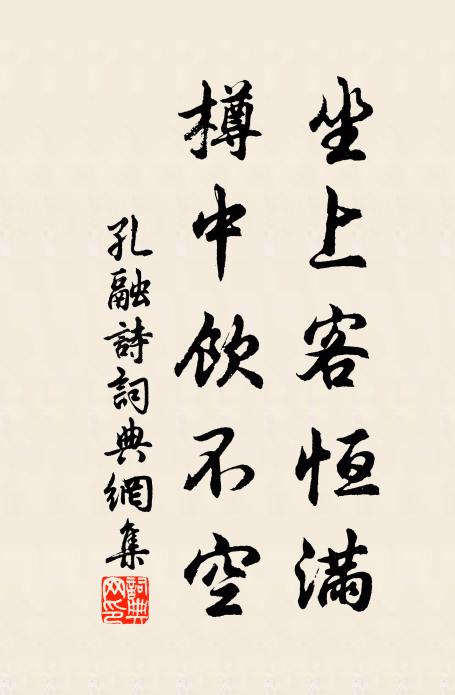 坐上客恒滿
樽中飲不空
孔融詩詞典網集
詞典網印